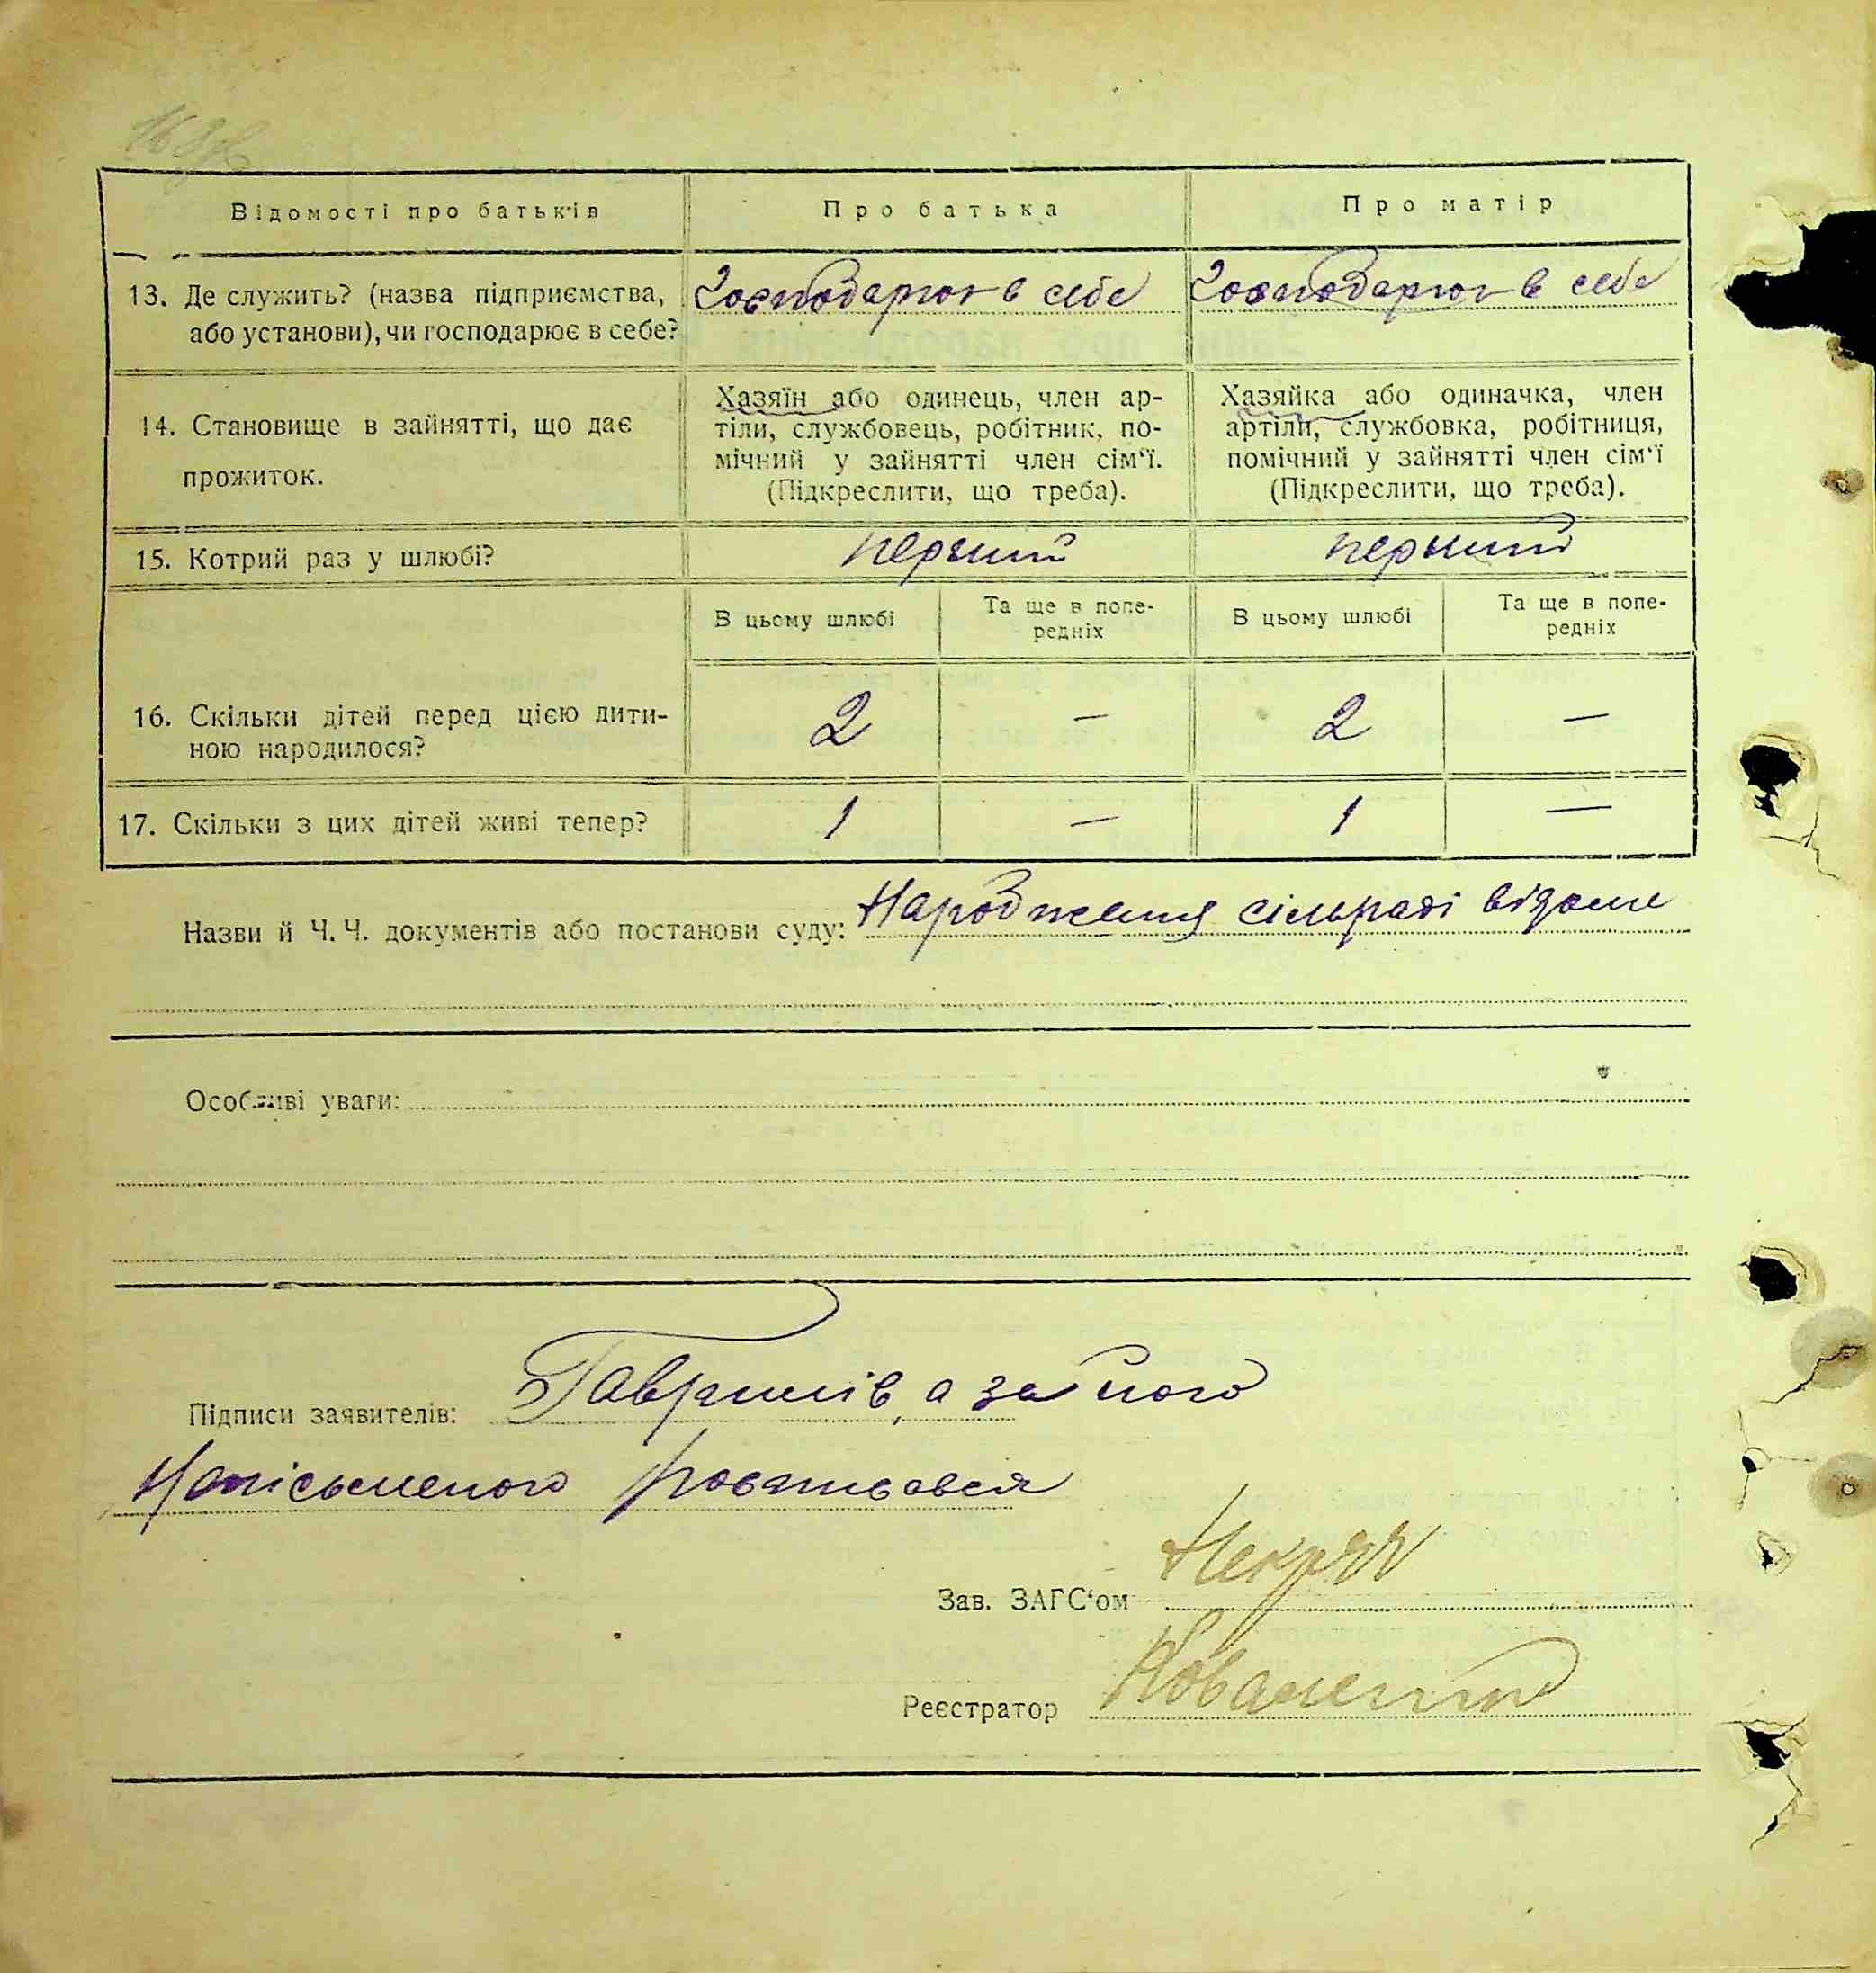 Відомості про батьків
Про батька
Про матір
13. Де служить? (назва підприємства, або установи), чи господарює в себе?
Господарює в себе
Господарює в себе
14. Становище в зайнятті, що дає прожиток.
Хазяїн або одинець, член ар-
тіли, службовець, робітник, по-
мічний у зайнятті член сім‘ї.
(Підкреслити, що треба).
Хазяйка або одиначка, член
артіли, службовка, робітниця,
помічний у зайнятті член сім‘ї
(Підкреслити, що треба).
15. Котрий раз у шлюбі?
перший
перший
В цьому шлюбі
Та ще в попе-
редніх
В цьому шлюбі
Та ще в попе-
редніх
16. Скільки дітей перед цією дити-
ною народилося?
2
—
2
—
17. Скільки з цих дітей живі тепер?
1
—
1
—
Назви й Ч. Ч. документів або постанови суду: Народження сільраді відоме
Особливі уваги:
Підписи заявителів: Гаврилів, а за його
неписьменого росписався
Зав. ЗАГС‘ом
Реєстратор Коваленко